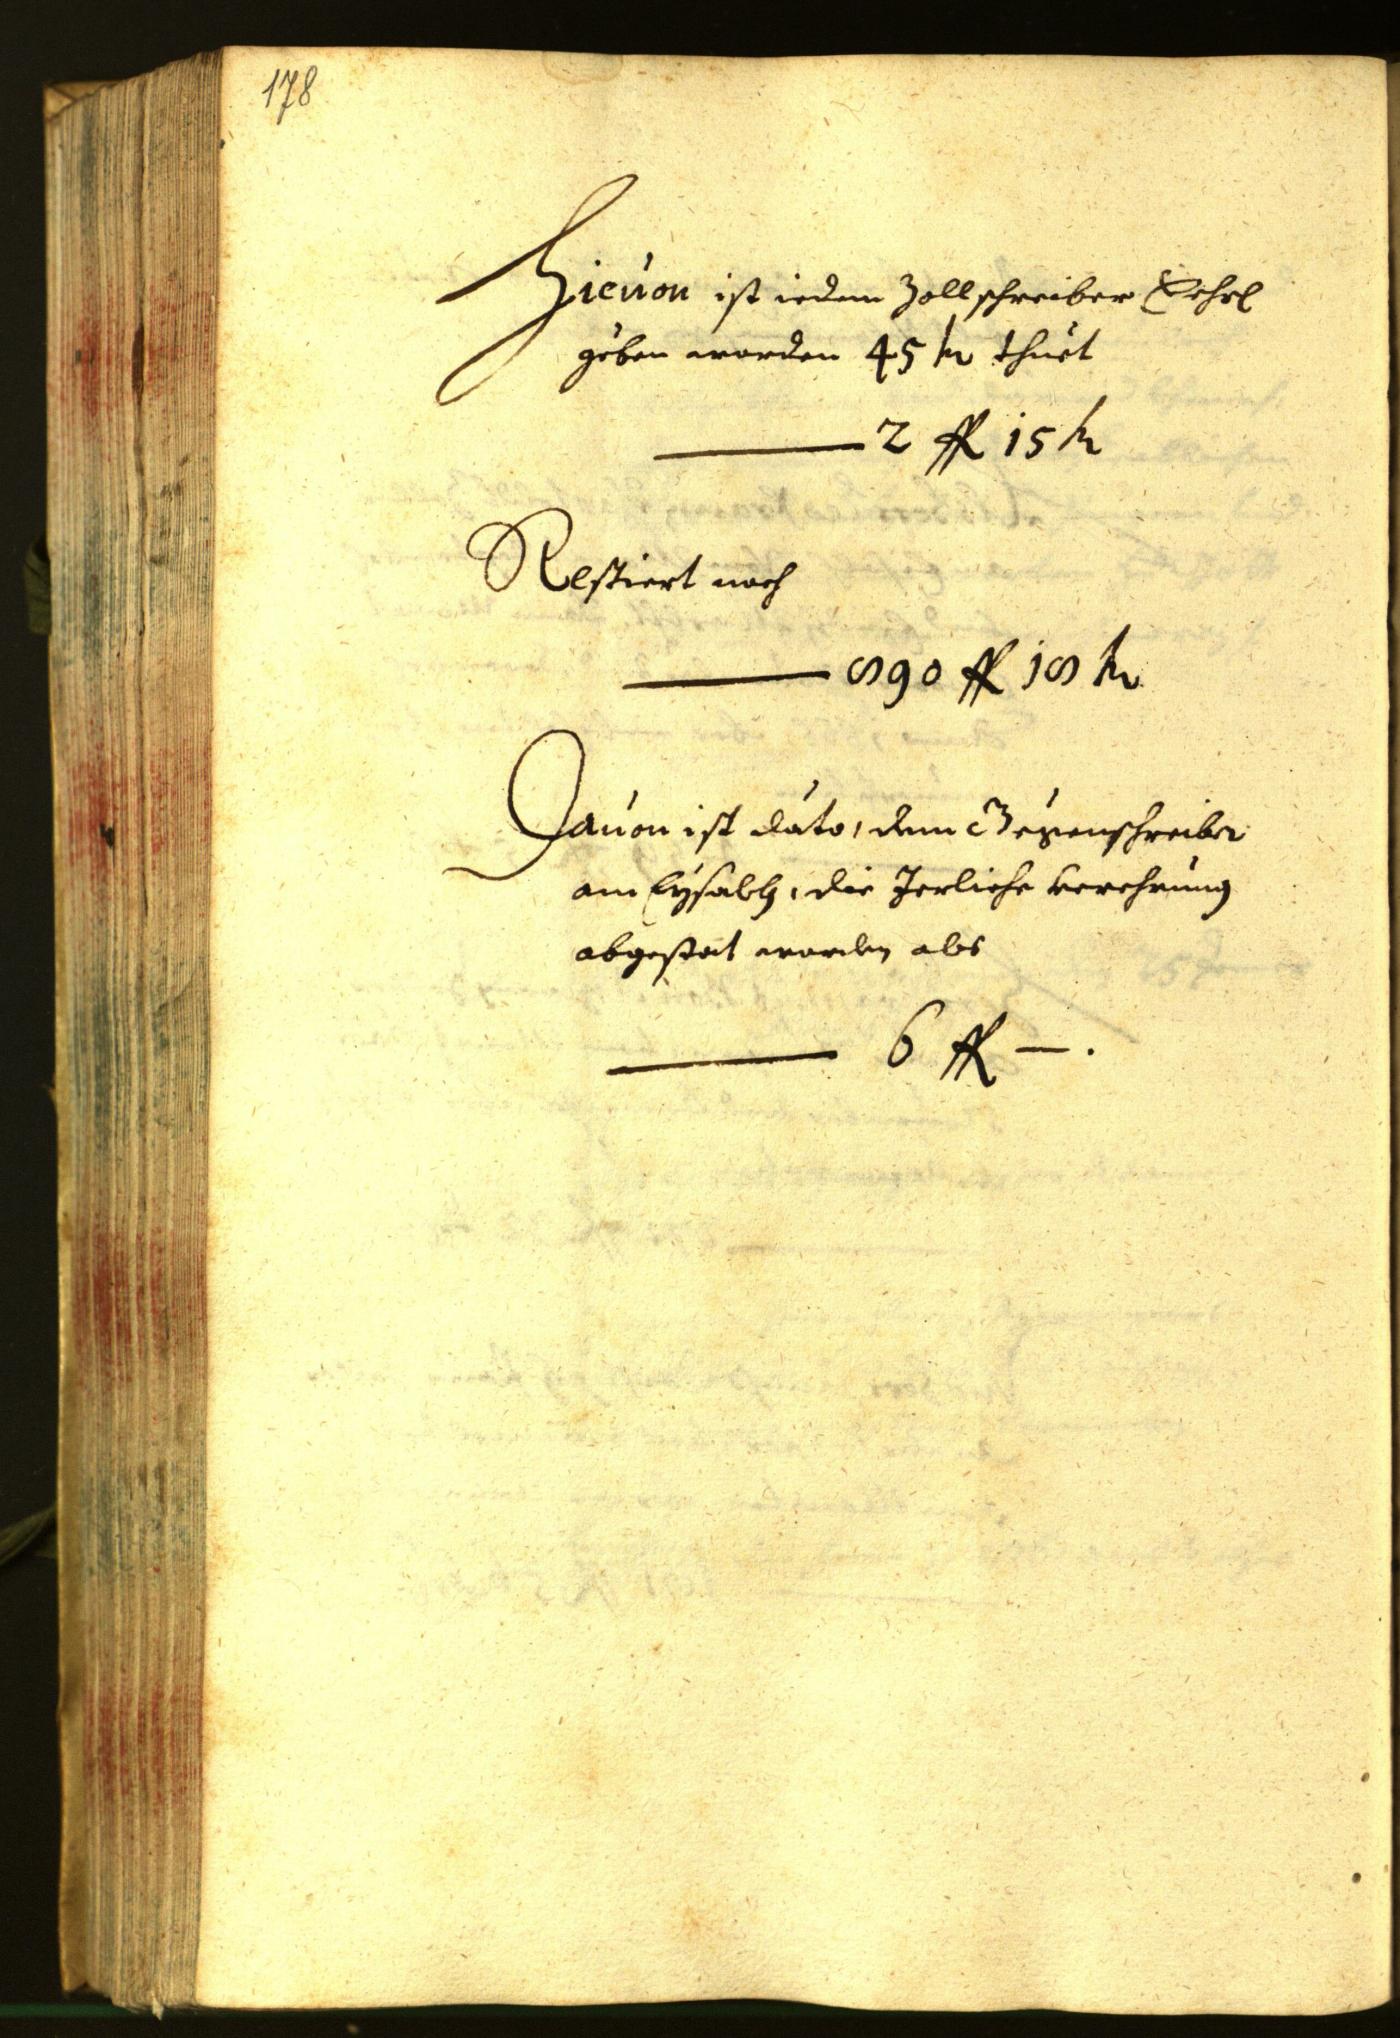 178
Hieuon ist iedem Zollschreiber
geben worden 45 kr thuet
2 fl 15 kr
Restiert noch
890 fl 18 kr
Dauon ist dato, dem Gegenschreiber
am Eysakh, die Jerliche verehrung
abgestat worden als
6 fl — .